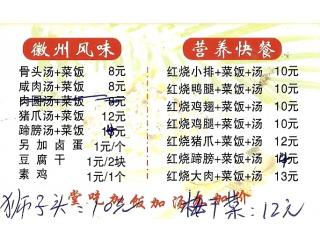 徽州风味
骨头汤+菜饭 8元
咸肉汤+菜饭 8元
肉圆汤+菜饭 8元
猪爪汤+菜饭 12元
蹄膀汤+菜饭
另加卤蛋 1元/个
豆腐干 1元/2块
素鸡 1元/个
营养快餐
红烧小排+菜饭+汤 10元
红烧鸭腿+菜饭+汤 10元
红烧鸡翅+菜饭+汤 10元
红烧鸡腿+菜饭+汤 10元
红烧猪爪+菜饭+汤 12元
红烧蹄膀+菜饭+汤 14元
红烧大肉+菜饭+汤 13元
堂吃加饭加汤不加价
狮子头:10元
梅干菜:12元